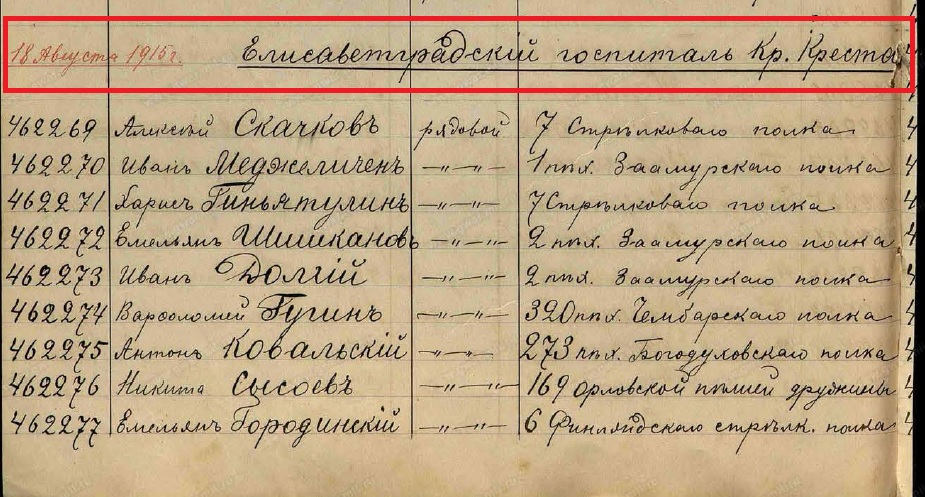 18 Августа 1915 г. Елисаветградскій госпиталь Кр. Креста
462269 Алексѣй Скачковъ рядовой 7 Стрѣлковаго полка
462270 Иванъ Меджеличенъ —"— —"— 1 пѣх. Заамурскаго полка
462271 Харисъ Гиньятулинъ —"— —"— 7 Стрѣлковаго полка
462272 Емельянъ Шишкановъ —"— —"— 2 пѣх. Заамурскаго полка
462273 Иванъ Долгій —"— —"— 2 пѣх. Заамурскаго полка
462274 Варфоломей Гугинъ —"— —"— 320 пѣх. Чембарскаго полка
462275 Антонъ Ковальскій —"— 273 пѣх. Богодуховскаго полка
462276 Никита Сысоевъ —"— —"— 169 орловской пѣшей дружины
462277 Емельянъ Городинскій —"— —"— 6 Финляндскаго стрѣлк. полка